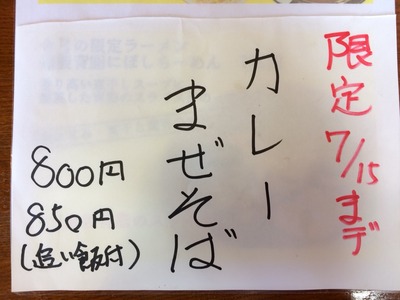 限定7/15まデ
カレー
まぜそば
800円
850円
(追い飯付)